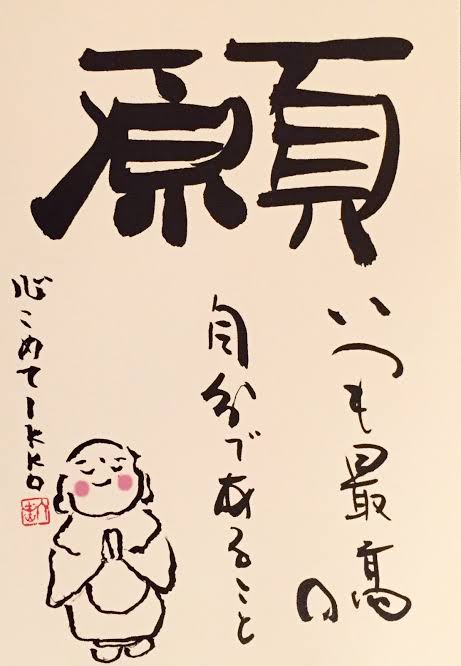 願
いつも最高の
自分であること
心こめてIKKO